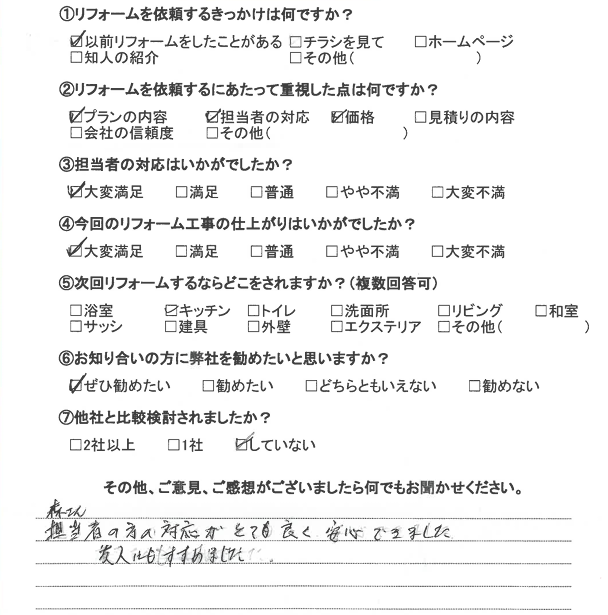 ①リフォームを依頼するきっかけは何ですか？
☑以前リフォームをしたことがある □チラシを見て □ホームページ
□知人の紹介 □その他( )
②リフォームを依頼するにあたって重視した点は何ですか？
☑プランの内容 ☑担当者の対応 ☑価格 □見積りの内容
□会社の信頼度 □その他( )
③担当者の対応はいかがでしたか？
☑大変満足 □満足 □普通 □やや不満 □大変不満
④今回のリフォーム工事の仕上がりはいかがでしたか？
☑大変満足 □満足 □普通 □やや不満 □大変不満
⑤次回リフォームするならどこをされますか？(複数回答可)
□浴室 ☑キッチン □トイレ □洗面所 □リビング □和室
□サッシ □建具 □外壁 □エクステリア □その他( )
⑥お知り合いの方に弊社を勧めたいと思いますか？
☑ぜひ勧めたい □勧めたい □どちらともいえない □勧めない
⑦他社と比較検討されましたか？
□2社以上 □1社 ☑していない
その他、ご意見、ご感想がございましたら何でもお聞かせください。
森さん
担当者の方の対応がとても良く安心できました
友人にもすすめました。